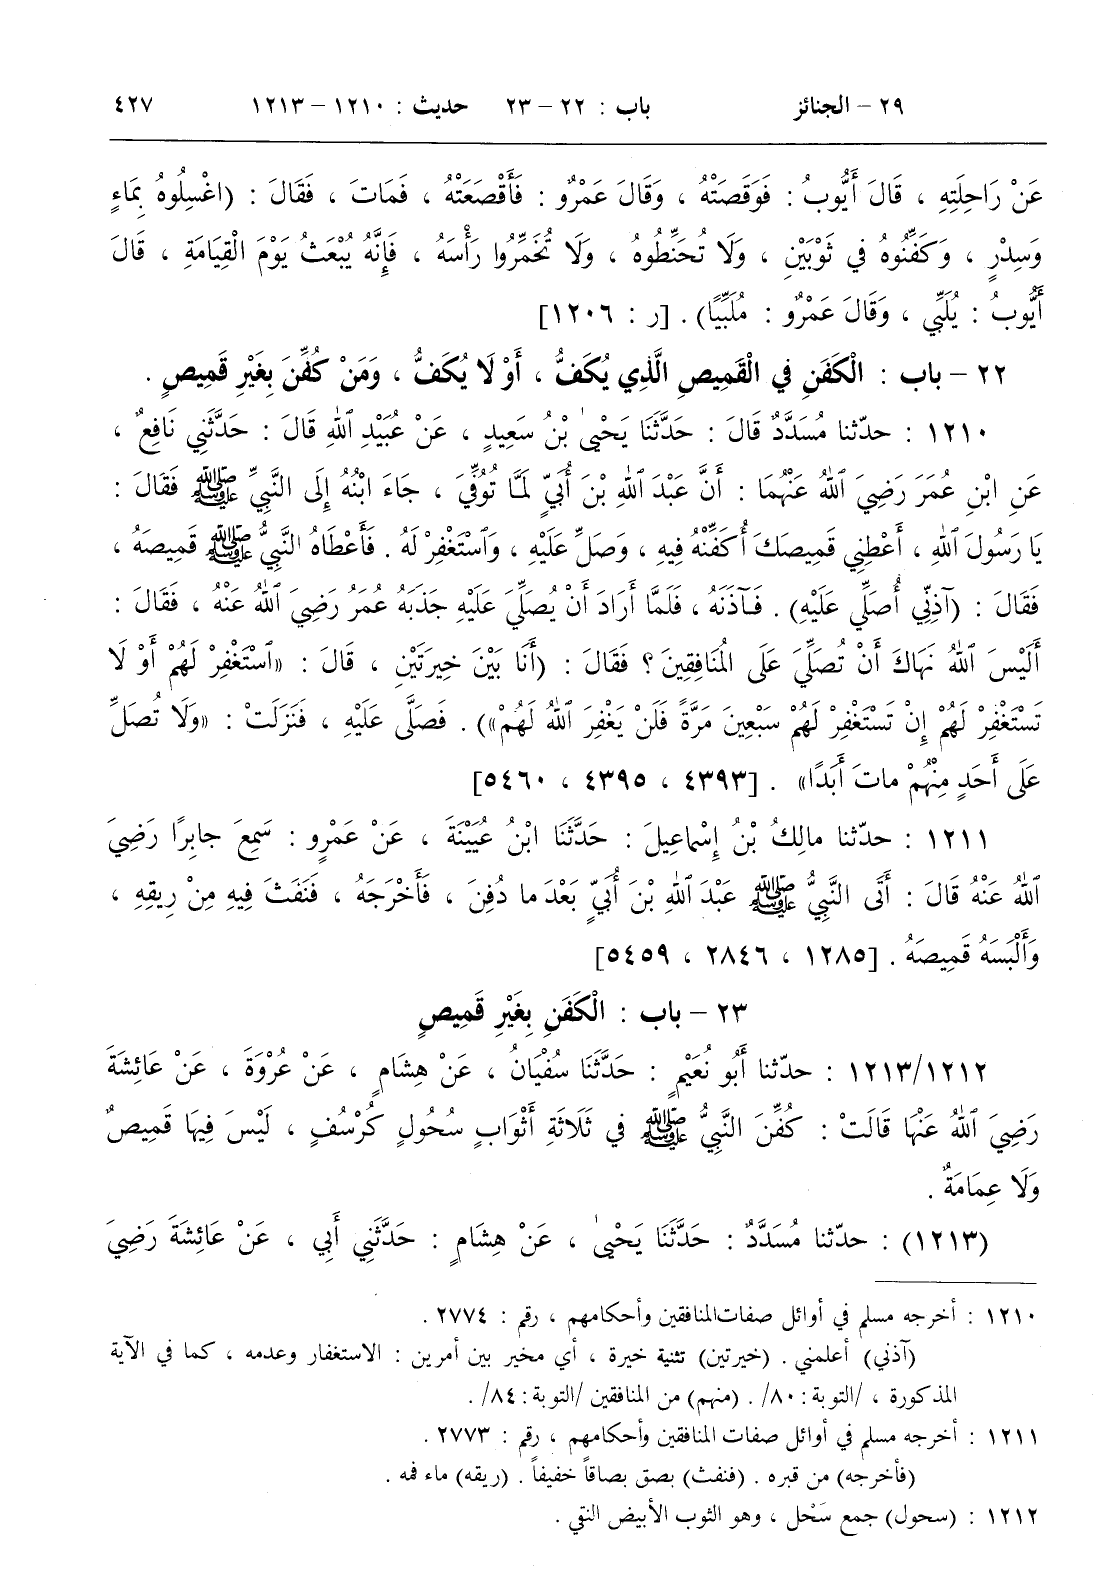 ٢٩ – الجنائز باب : ٢٢ – ٢٣ حديث : ١٢١٠ – ١٢١٣ ٤٢٧
عَنْ رَاحِلَتِهِ ، قَالَ أَيُّوبُ : فَوَقَصَتْهُ ، وَقَالَ عَمْرٌو : فَأَقْصَعَتْهُ ، فَمَاتَ ، فَقَالَ : (اغْسِلُوهُ بِمَاءٍ
وَسِدْرٍ ، وَكَفِّنُوهُ في ثَوْبَيْنِ ، وَلَا تُحَنِّطُوهُ ، وَلَا تُخَمِّرُوا رَأْسَهُ ، فَإِنَّهُ يُبْعَثُ يَوْمَ الْقِيَامَةِ ، قَالَ
أَيُّوبُ : يُلَبِّي ، وَقَالَ عَمْرٌو : مُلَبِّيًا) . [ر : ١٢٠٦]
٢٢ – باب : الْكَفَنِ في الْقَمِيصِ الَّذِي يُكَفُّ ، أَوْ لَا يُكَفُّ ، وَمَنْ كُفِّنَ بِغَيْرِ قَمِيصٍ .
١٢١٠ : حدّثنا مُسَدَّدٌ قَالَ : حَدَّثَنَا يَحْيىٰ بْنُ سَعِيدٍ ، عَنْ عُبَيْدِ ٱللهِ قَالَ : حَدَّثَنِي نَافِعٌ ،
عَنِ ابْنِ عُمَرَ رَضِيَ ٱللهُ عَنْهُمَا : أَنَّ عَبْدَ ٱللهِ بْنَ أُبَيٍّ لَمَّا تُوُفِّيَ ، جَاءَ ابْنُهُ إِلَى النَّبِيِّ ﷺ فَقَالَ :
يَا رَسُولَ ٱللهِ ، أَعْطِنِي قَمِيصَكَ أُكَفِّنْهُ فِيهِ ، وَصَلِّ عَلَيْهِ ، وَٱسْتَغْفِرْ لَهُ . فَأَعْطَاهُ النَّبِيُّ ﷺ قَمِيصَهُ ،
فَقَالَ : (آذِنِّي أُصَلِّي عَلَيْهِ) . فَآذَنَهُ ، فَلَمَّا أَرَادَ أَنْ يُصَلِّيَ عَلَيْهِ جَذَبَهُ عُمَرُ رَضِيَ ٱللهُ عَنْهُ ، فَقَالَ :
أَلَيْسَ ٱللهُ نَهَاكَ أَنْ تُصَلِّيَ عَلَى المُنَافِقِينَ ؟ فَقَالَ : (أَنَا بَيْنَ خِيرَتَيْنِ ، قَالَ : «ٱسْتَغْفِرْ لَهُمْ أَوْ لَا
تَسْتَغْفِرْ لَهُمْ إِنْ تَسْتَغْفِرْ لَهُمْ سَبْعِينَ مَرَّةً فَلَنْ يَغْفِرَ ٱللهُ لَهُمْ») . فَصَلَّى عَلَيْهِ ، فَنَزَلَتْ : «وَلَا تُصَلِّ
عَلَى أَحَدٍ مِنْهُمْ ماتَ أَبَدًا» . [٤٣٩٣ ، ٤٣٩٥ ، ٥٤٦٠]
١٢١١ : حدّثنا مالِكُ بْنُ إِسْماعِيلَ : حَدَّثَنَا ابْنُ عُيَيْنَةَ ، عَنْ عَمْرٍو : سَمِعَ جابِرًا رَضِيَ
ٱللهُ عَنْهُ قَالَ : أَتَى النَّبِيُّ ﷺ عَبْدَ ٱللهِ بْنَ أُبَيٍّ بَعْدَ ما دُفِنَ ، فَأَخْرَجَهُ ، فَنَفَثَ فِيهِ مِنْ رِيقِهِ ،
وَأَلْبَسَهُ قَمِيصَهُ . [١٢٨٥ ، ٢٨٤٦ ، ٥٤٥٩]
٢٣ – باب : الْكَفَنِ بِغَيْرِ قَمِيصٍ
١٢١٣/١٢١٢ : حدّثنا أَبُو نُعَيْمٍ : حَدَّثَنَا سُفْيَانُ ، عَنْ هِشَامٍ ، عَنْ عُرْوَةَ ، عَنْ عَائِشَةَ
رَضِيَ ٱللهُ عَنْهَا قَالَتْ : كُفِّنَ النَّبِيُّ ﷺ في ثَلَاثَةِ أَثْوَابٍ سُحُولٍ كُرْسُفٍ ، لَيْسَ فِيهَا قَمِيصٌ
وَلَا عِمَامَةٌ .
(١٢١٣) : حدّثنا مُسَدَّدٌ : حَدَّثَنَا يَحْيىٰ ، عَنْ هِشَامٍ : حَدَّثَنِي أَبِي ، عَنْ عَائِشَةَ رَضِيَ
١٢١٠ : أخرجه مسلم في أوائل صفات المنافقين وأحكامهم ، رقم : ٢٧٧٤ .
(آذني) أعلمني . (خيرتين) تثنية خيرة ، أي مخير بين أمرين : الاستغفار وعدمه ، كما في الآية
المذكورة ، /التوبة : ٨٠/ . (منهم) من المنافقين /التوبة : ٨٤/ .
١٢١١ : أخرجه مسلم في أوائل صفات المنافقين وأحكامهم ، رقم : ٢٧٧٣ .
(فأخرجه) من قبره . (فنفث) بصق بصاقاً خفيفاً . (ريقه) ماء فمه .
١٢١٢ : (سحول) جمع سَحْل ، وهو الثوب الأبيض النقي .